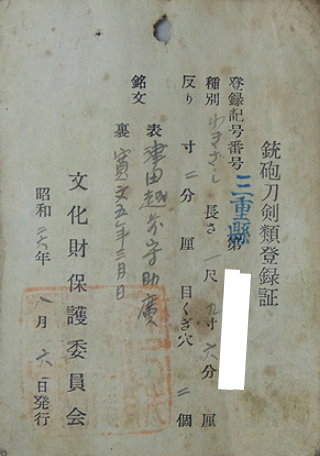 銃砲刀剣類登録証
登録記号番号 三重縣 第
種別 わきざし 長さ 一尺 九寸 六分 厘
反り 寸 二分 厘 目くぎ穴 二個
銘文 表 津田越前守助廣
裏 寛文五年三月日
文化財保護委員会
昭和 二六年 八月 六日発行